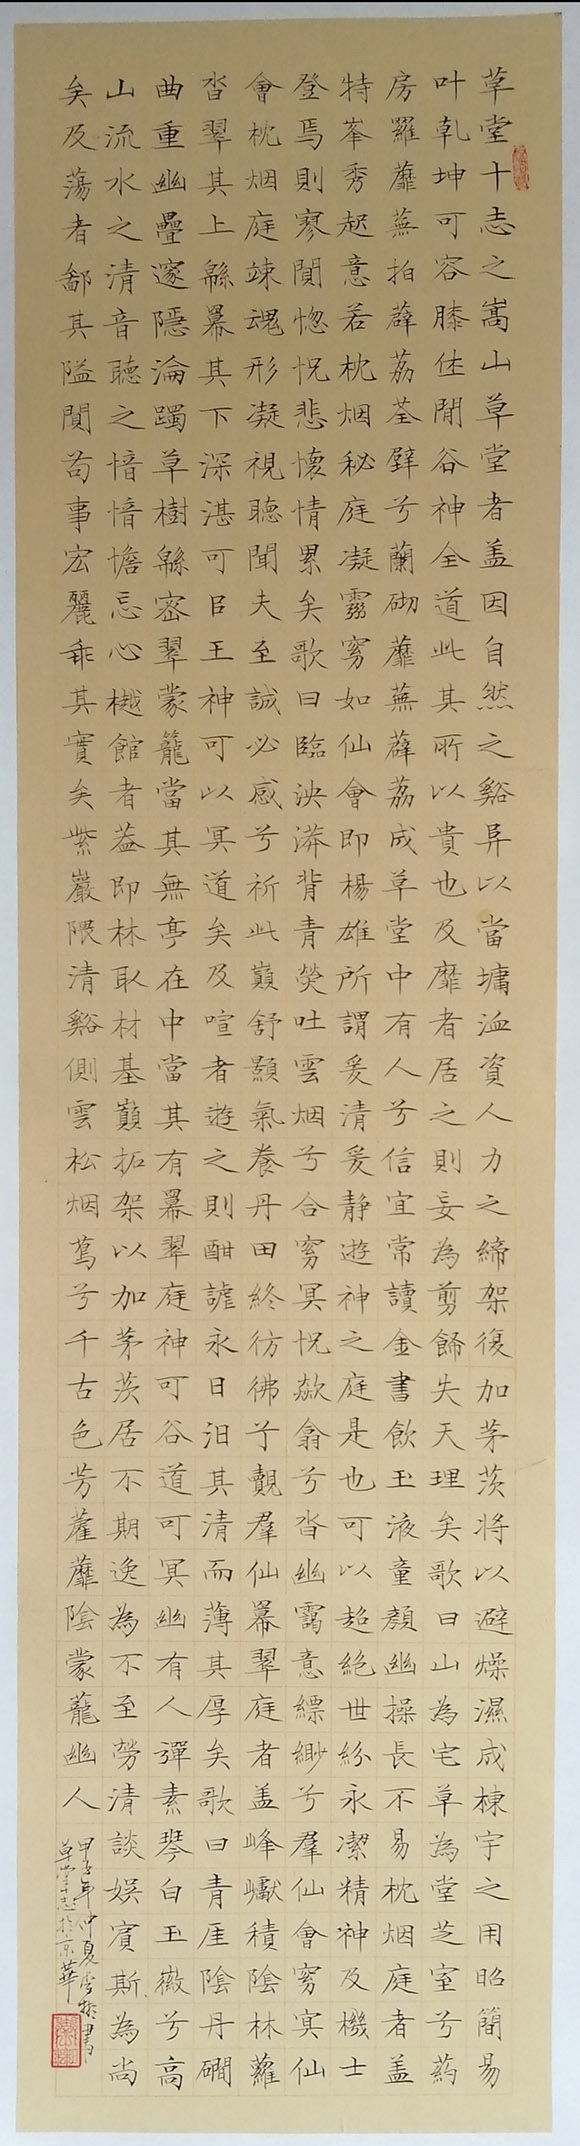 草堂十志之嵩山草堂者盖因自然之谿异以當墉洫資人力之締架復加茅茨將以避燥濕成棟宇之用昭簡易
叶乾坤可容膝休閒谷神全道此其所以貴也及靡者居之則妄為剪飾失天理矣歌曰山為宅草為堂芝室兮葯
房羅蘼蕪拍薜荔荃壁兮蘭砌蘼蕪薜荔成草堂中有人兮信宜常讀金書飲玉液童顏幽操長不易枕烟庭者盖
特峯秀起意若枕烟秘庭凝靄窅如仙會即楊雄所謂爰清爰静遊神之庭是也可以超絶世紛永潔精神及機士
登焉則寥闃惚怳悲懷情累矣歌曰臨泱漭背青熒吐雲烟兮合窅冥怳欻翕兮沓幽靄意縹緲兮羣仙會窅冥仙
會枕烟庭竦魂形凝視聽聞夫至誠必感兮祈此巔舒顥氣養丹田終彷彿兮覿羣仙冪翠庭者盖峰巘積陰林蘿
沓翠其上緜冪其下深湛可㠯王神可以冥道矣及喧者遊之則酣謔永日汩其清而薄其厚矣歌曰青厓陰丹磵
曲重幽疊邃隱淪躅草樹緜密翠蒙籠當其無亭在中當其有冪翠庭神可谷道可冥幽有人彈素琴白玉徽兮高
山流水之清音聽之愔愔憺忘心樾館者葢即林取材基巔拓架以加茅茨居不期逸為不至勞清談娛賓斯為尚
矣及蕩者鄙其隘闃苟事宏麗乖其實矣紫巖隈清谿側雲松烟蔦兮千古色芳藋蘼陰蒙蘢幽人
甲子年仲夏書
草堂十志於京華